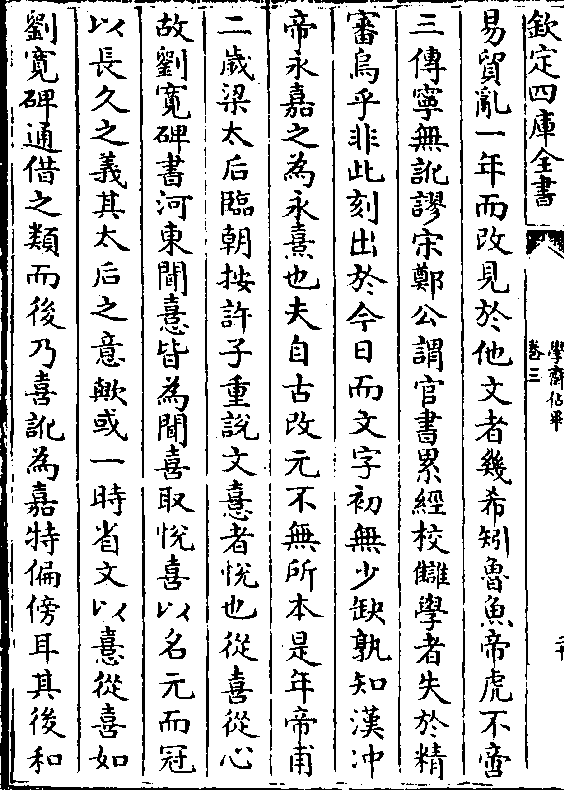 欽定四庫全書
學齋佔畢
卷三
易貿亂一年而改見於他文者幾希矧魯魚帝虎不啻
三傳寧無訛謬宋鄭公謂官書累經校讎學者失於精
審烏乎非此刻出於今日而文字初無少缺孰知漢沖
帝永嘉之為永熹也夫自古改元不無所本是年帝甫
二歲梁太后臨朝按許子重說文憙者悅也從喜從心
故劉寬碑書河東聞憙皆為聞喜取悅喜以名元而冠
以長久之義其太后之意歟或一時省文以憙從喜如
劉寬碑通借之類而後乃喜訛為嘉特偏傍耳其後和